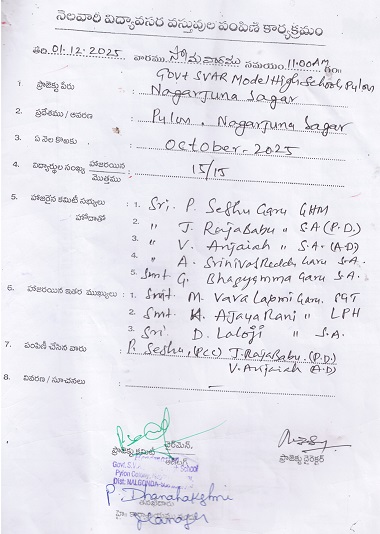 నెలవారీ విద్యావసర వస్తువుల పంపిణి కార్యక్రమం
తేది. 01.12.2025 వారము. సోమవారము సమయం. 11.00AM గం॥
Govt SVAR Model High School, Pylon
1. ప్రాజెక్టు పేరు : Nagarjuna Sagar
2. ప్రదేశము / ఆవరణ : Pylon. Nagarjuna Sagar
3. ఏ నెల కొఱకు : October-2025
4. విద్యార్థుల సంఖ్య హాజరయిన / మొత్తము : 15/15
5. హాజరైన కమిటీ సభ్యులు : 1. Sri. P. Seshu Garu GHM
హోదాతో 2. " J. RajaBabu " S.A (P.D.)
3. " V. Anjaiah " S.A. (A.D)
4. " A. Srinivas Reddy Garu S.A.
5. Smt G. Bhagyamma Garu S.A.
6. హాజరయిన ఇతర ముఖ్యులు : 1. Smt. M. Vara Laxmi Garu. PGT
2. Smt K. Ajaya Rani " LPH
3. Sri. D. Laloji " S.A.
7. పంపిణి చేసిన వారు : P. Seshu, (PCC) J. RajaBabu. (P.D.)
V. Anjaiah (A.D)
8. వివరణ / సూచనలు : —
ప్రాజెక్టు కమిటి ఛైర్మెన్,
ప్రాజెక్టు డైరెక్టర్
Govt. S.V. School
Pylon Colony
Dist. NALGONDA
P. Dhanalakshmi
Manager